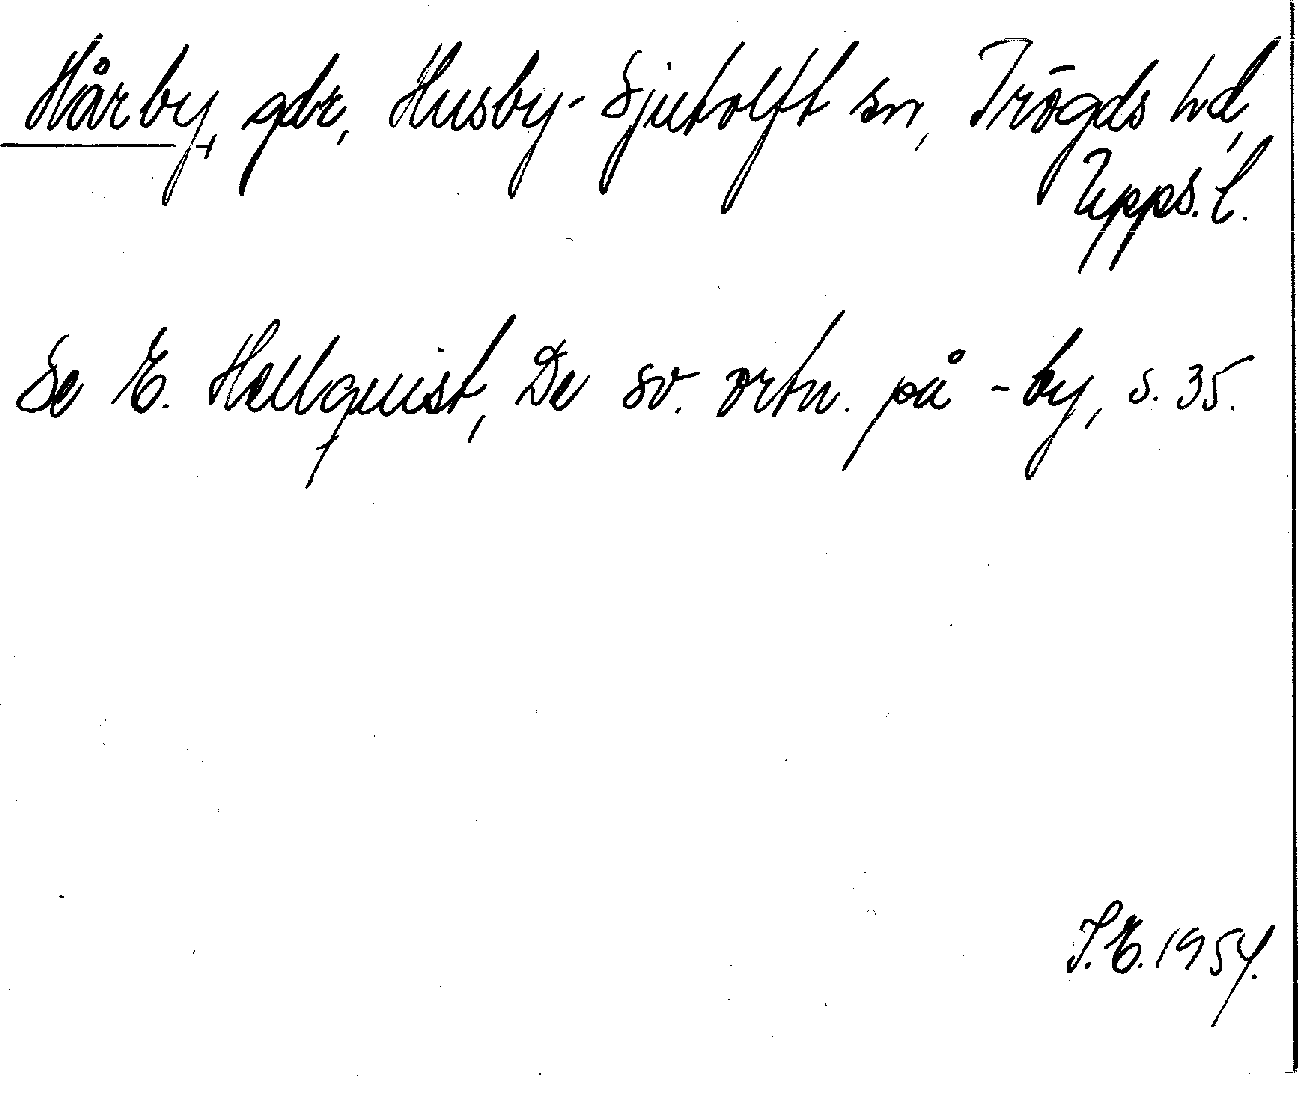 Hårby, gdr, Husby-Sjutolft sn, Trögds hd,
Upps. l.
Se E. Hellquist, De sv. ortn. på -by, s. 35.
I.E. 1954.